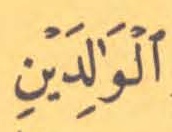 ٱلْوَٰلِدَيْنِ